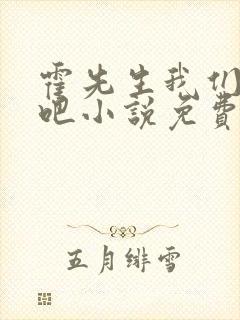 霍先生我们
吧小说免费
五月绯雪